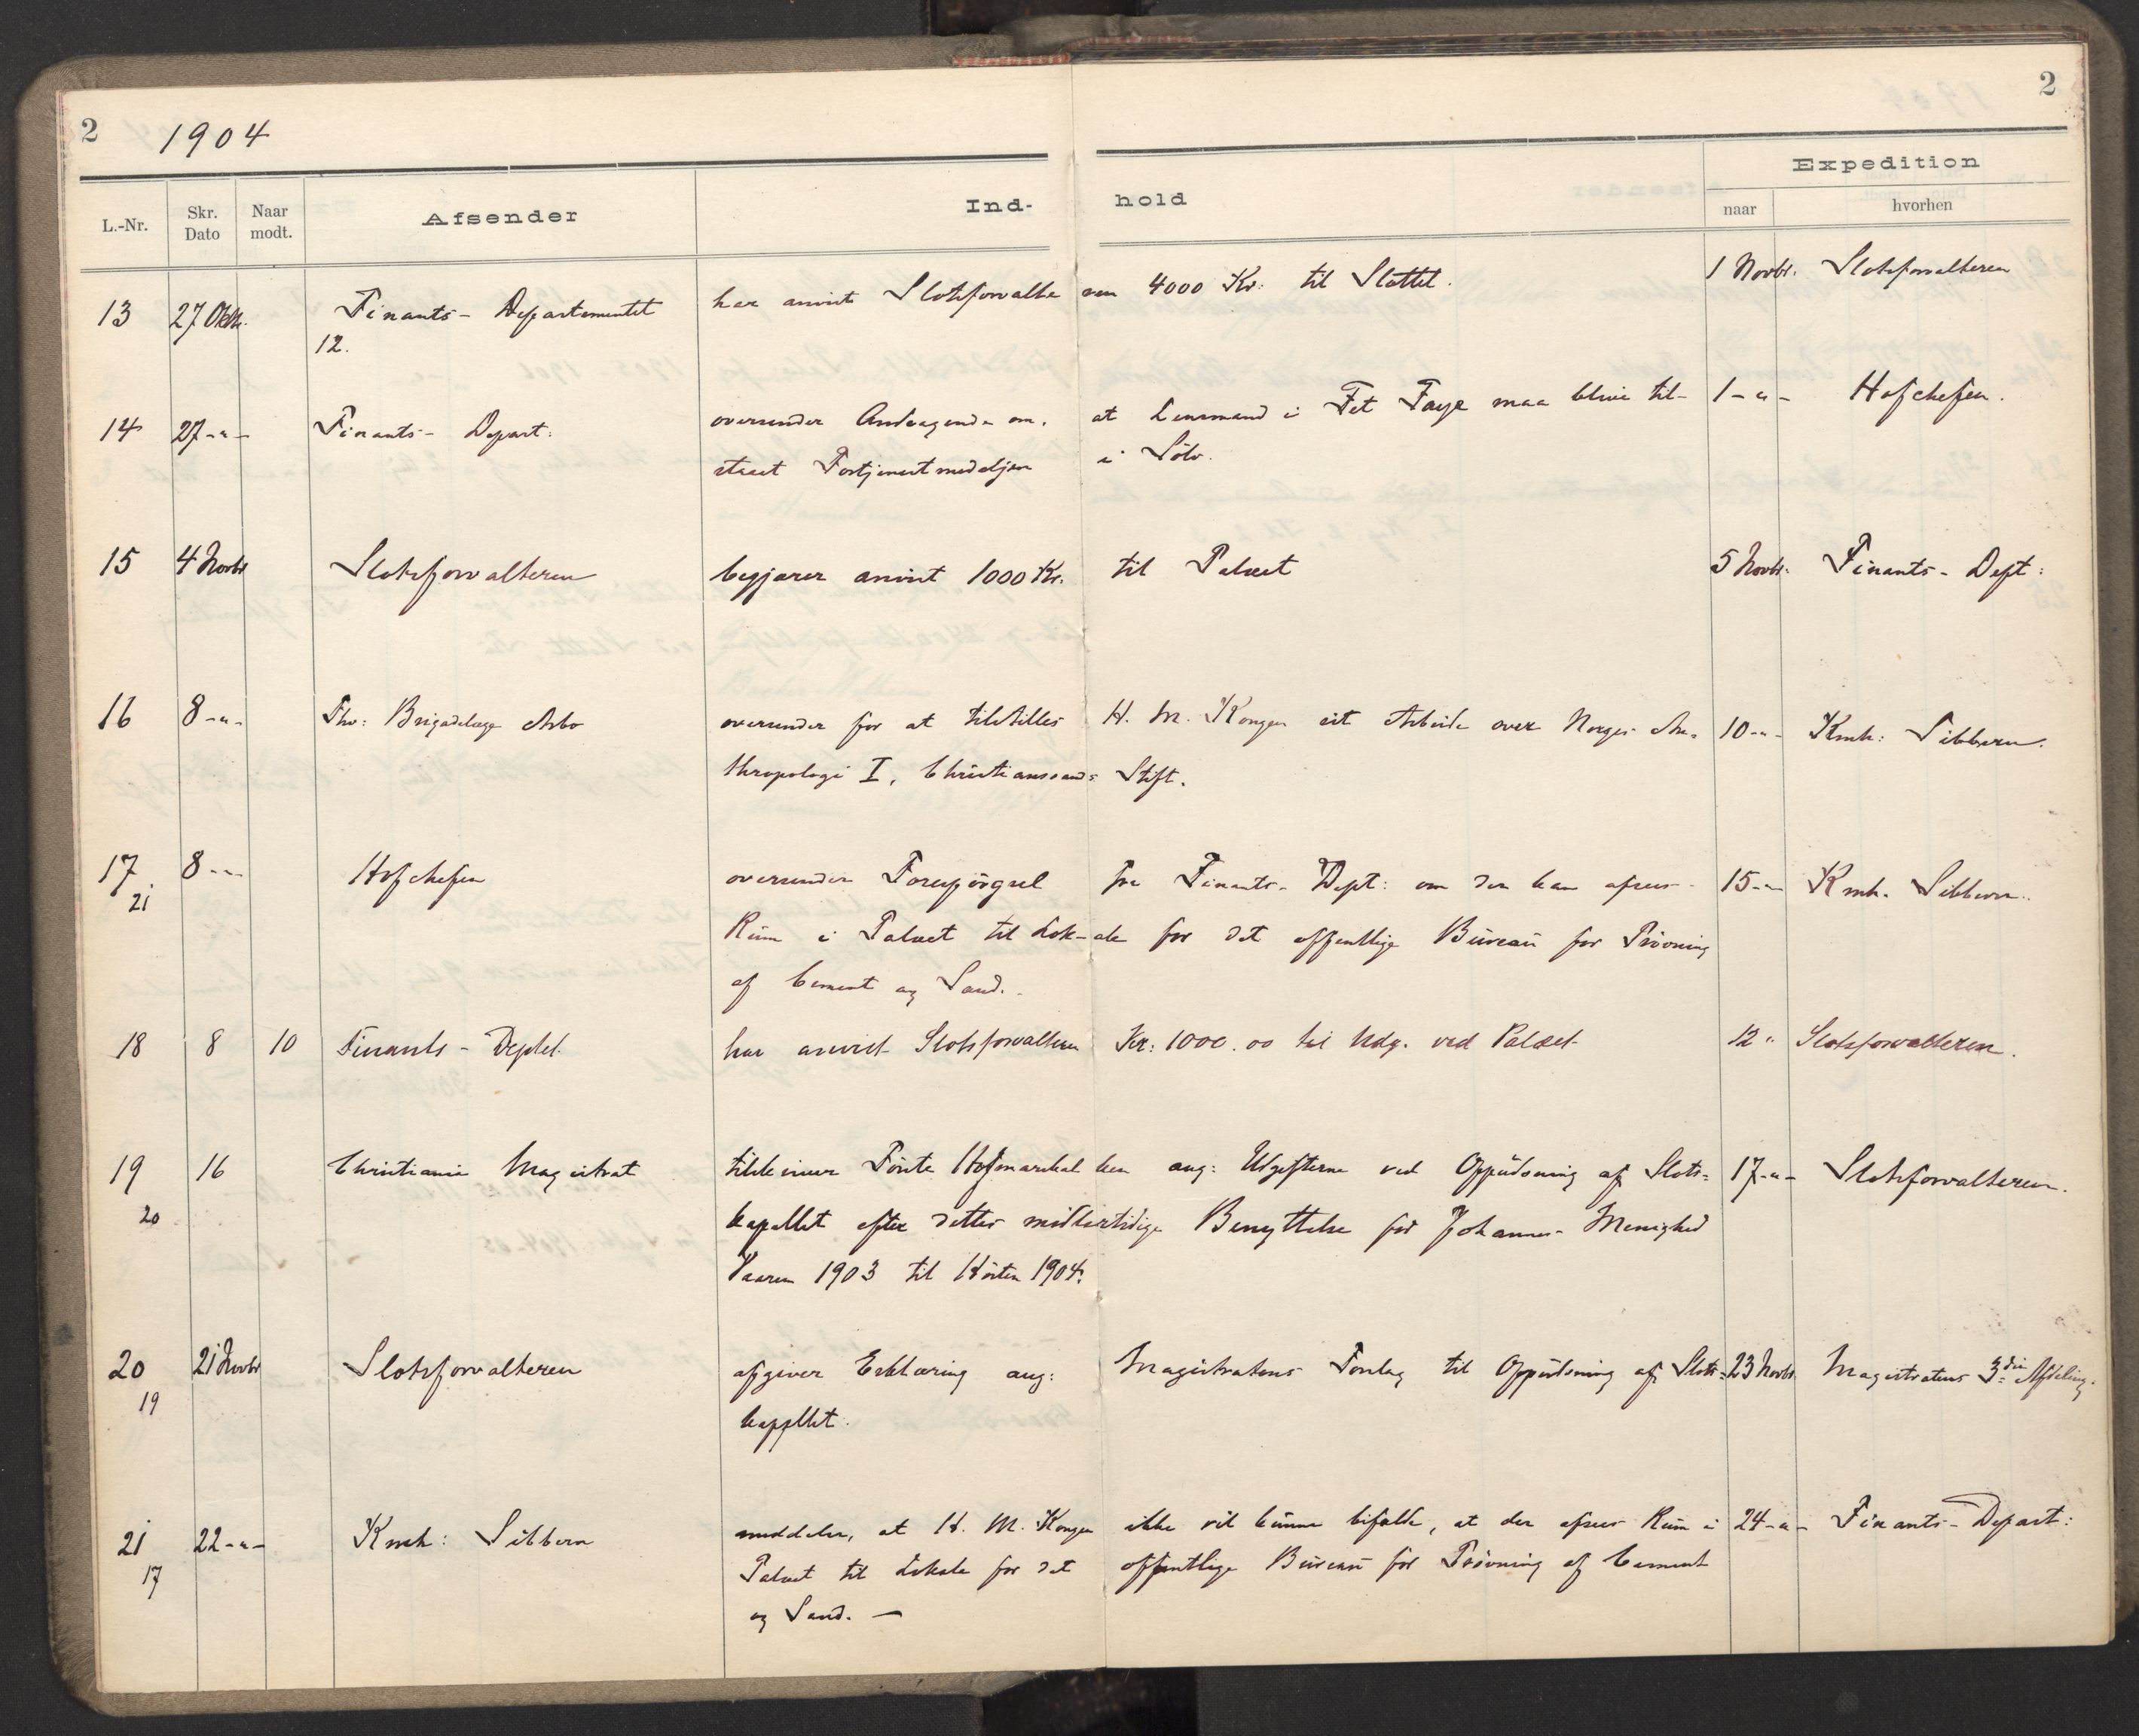 2 1904 2
L.-Nr. Skr. Dato Naar modt. Afsender Ind- hold Expedition naar hvorhen
13 27 Oktbr. Finants- Departementet har anvist Slotsforvalte ren 4000 Kr. til Slottet. 1 Novbr. Slotsforvalteren
12.
14 27-"- Finants- Depart: oversender Andragende om, at Lensmand i Fet Faye maa blive til- 1-"- Hofchefen.
staaet Fortjenstmedaljen i Sölv.
15 4 Novbr Slotsforvalteren begjærer anvist 1000 Kr. til Palæet 5 Novbr. Finants- Dept:
16 8-"- Fhv: Brigadelæge Arbo oversender for at tilstilles H. M. Kongen sit Arbeide over Norges An- 10-"- Kmh: Sibbern.
thropologi I, Christianssands Stift.
17 8-"- Hofchefen oversender Forespörgsel fra Finants- Dept: om der kan afsees 15-"- Kmh. Sibbern.
21 Rum i Palæet til Lok-ale for det offentlige Bureau for Prövning
af Cement og Sand.
18 8 10 Finants- Deptet. har anvist Slotsforvalteren Kr: 1000.00 til Udg. ved Palæet 12 " Slotsforvalteren.
19 16 Christiania Magistrat tilskriver Förste Hofmarskal ken ang: Udgifterne ved Oppudsning af Slots= 17-"- Slotsforvalteren.
20 kapellet efter dettes midlertidige Benyttelse for Johannes- Menighed
Vaaren 1903 til Hösten 1904.
20 21 Novbr Slotsforvalteren afgiver Erklæring ang: Magistratens Forslag til Oppudsning af Slots= 23 Novbr. Magistratens 3die Afdeling.
19 kapellet.
21 22-"- Kmh: Sibbern meddeler, at H. M. Kongen ikke vil kunne bifalde, at der afsees Rum i 24-"- Finants- Depart:
17 Palæet til Lokale for det offentlige Bureau for Prövning af Cement
og Sand. —